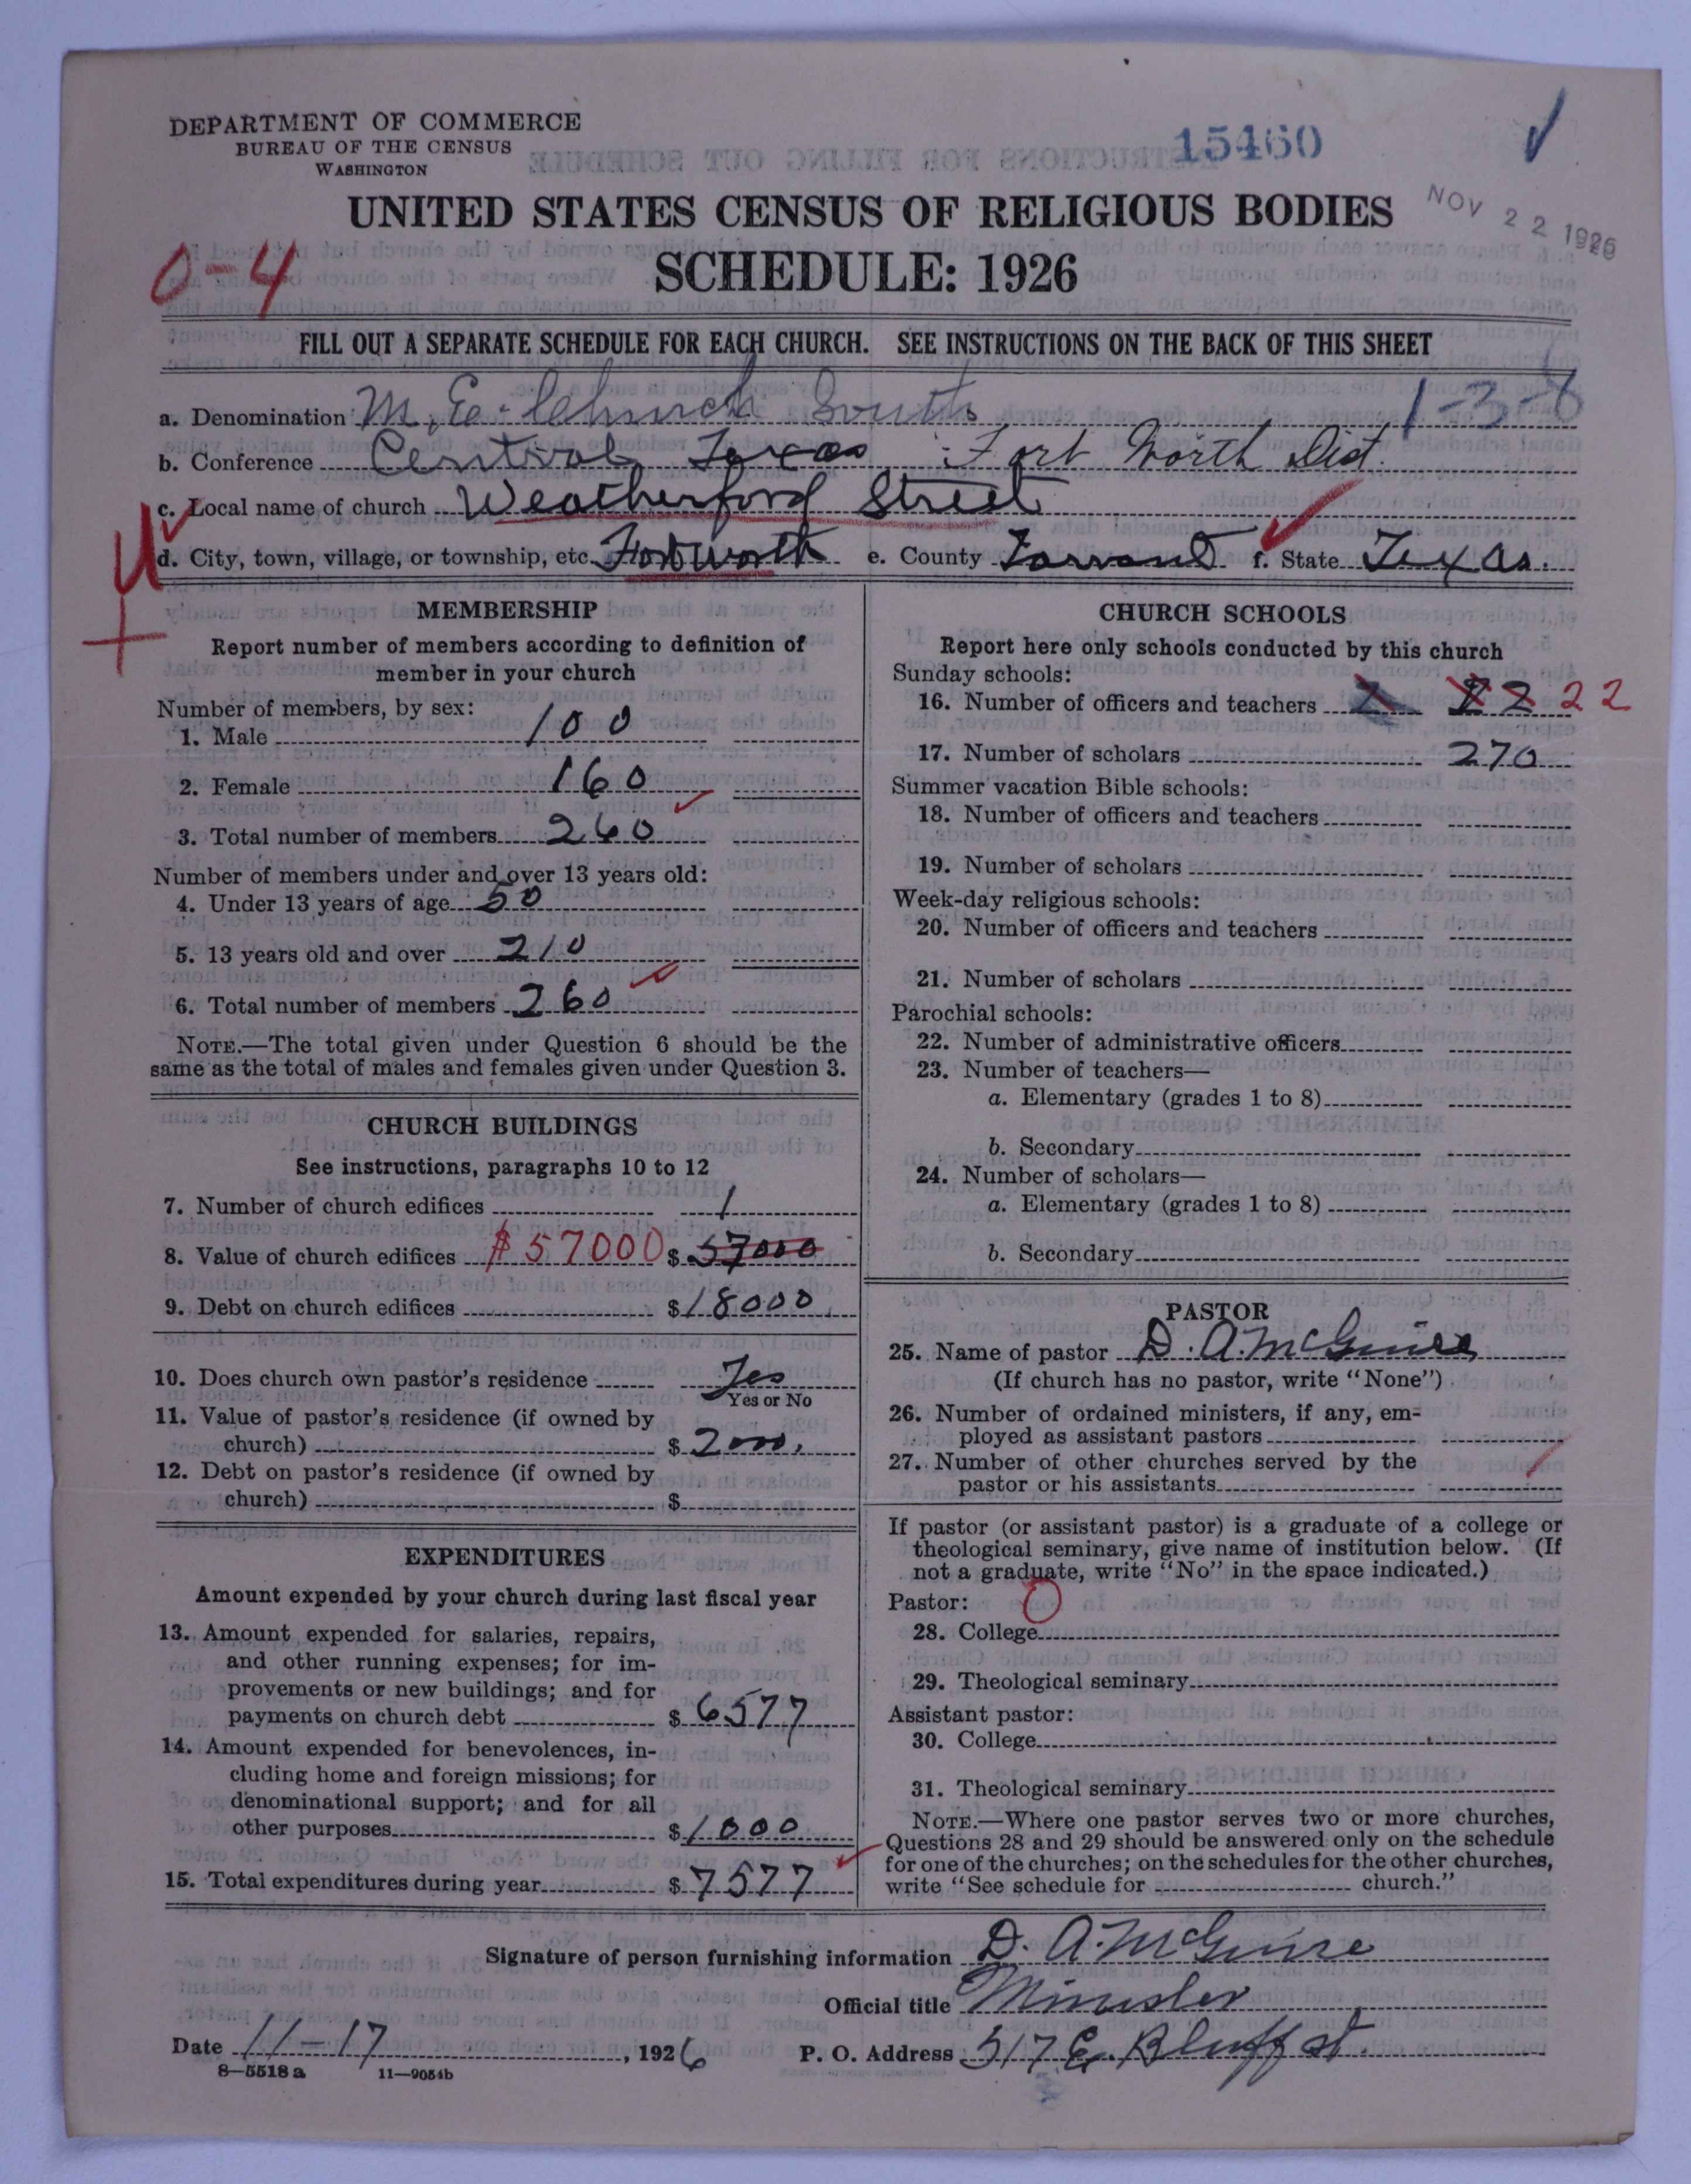 DEPARTMENT OF COMMERCE
BUREAU OF THE CENSUS
WASHINGTON
15460
NOV 22 1926
UNITED STATES CENSUS OF RELIGIOUS BODIES
SCHEDULE: 1926
0-4
FILL OUT A SEPARATE SCHEDULE FOR EACH CHURCH. SEE INSTRUCTIONS ON THE BACK OF THIS SHEET
1-3-6
a. Denomination M. E. Church South
b. Conference Central Texas Fort Worth Dist.
c. Local name of church Weatherford Street
d. City, town, village, or township, etc. Fort Worth e. County Tarrant f. State Texas.
U
MEMBERSHIP
Report number of members according to definition of
member in your church
Number of members, by sex:
1. Male 100
2. Female 160
3. Total number of members 260
Number of members under and over 13 years old:
4. Under 13 years of age 50
5. 13 years old and over 210
6. Total number of members 260
NOTE.—The total given under Question 6 should be the
same as the total of males and females given under Question 3.
CHURCH BUILDINGS
See instructions, paragraphs 10 to 12
7. Number of church edifices 1
8. Value of church edifices $57000 $57000
9. Debt on church edifices $18000
10. Does church own pastor's residence Yes
Yes or No
11. Value of pastor's residence (if owned by
church) $2000.
12. Debt on pastor's residence (if owned by
church) $
EXPENDITURES
Amount expended by your church during last fiscal year
13. Amount expended for salaries, repairs,
and other running expenses; for im-
provements or new buildings; and for
payments on church debt $6577
14. Amount expended for benevolences, in-
cluding home and foreign missions; for
denominational support; and for all
other purposes $1000
15. Total expenditures during year $7577
CHURCH SCHOOLS
Report here only schools conducted by this church
Sunday schools:
16. Number of officers and teachers 22 22
17. Number of scholars 270
Summer vacation Bible schools:
18. Number of officers and teachers
19. Number of scholars
Week-day religious schools:
20. Number of officers and teachers
21. Number of scholars
Parochial schools:
22. Number of administrative officers
23. Number of teachers—
a. Elementary (grades 1 to 8)
b. Secondary
24. Number of scholars—
a. Elementary (grades 1 to 8)
b. Secondary
PASTOR
25. Name of pastor D. A. McGuire
(If church has no pastor, write "None")
26. Number of ordained ministers, if any, em-
ployed as assistant pastors
27. Number of other churches served by the
pastor or his assistants
If pastor (or assistant pastor) is a graduate of a college or
theological seminary, give name of institution below. (If
not a graduate, write "No" in the space indicated.)
Pastor: 0
28. College
29. Theological seminary
Assistant pastor:
30. College
31. Theological seminary
NOTE.—Where one pastor serves two or more churches,
Questions 28 and 29 should be answered only on the schedule
for one of the churches; on the schedules for the other churches,
write "See schedule for church."
Signature of person furnishing information D. A. McGuire
Official title Minister
Date 11-17, 1926 P. O. Address 517 E. Bluff St.
8—5518 a 11—9054b